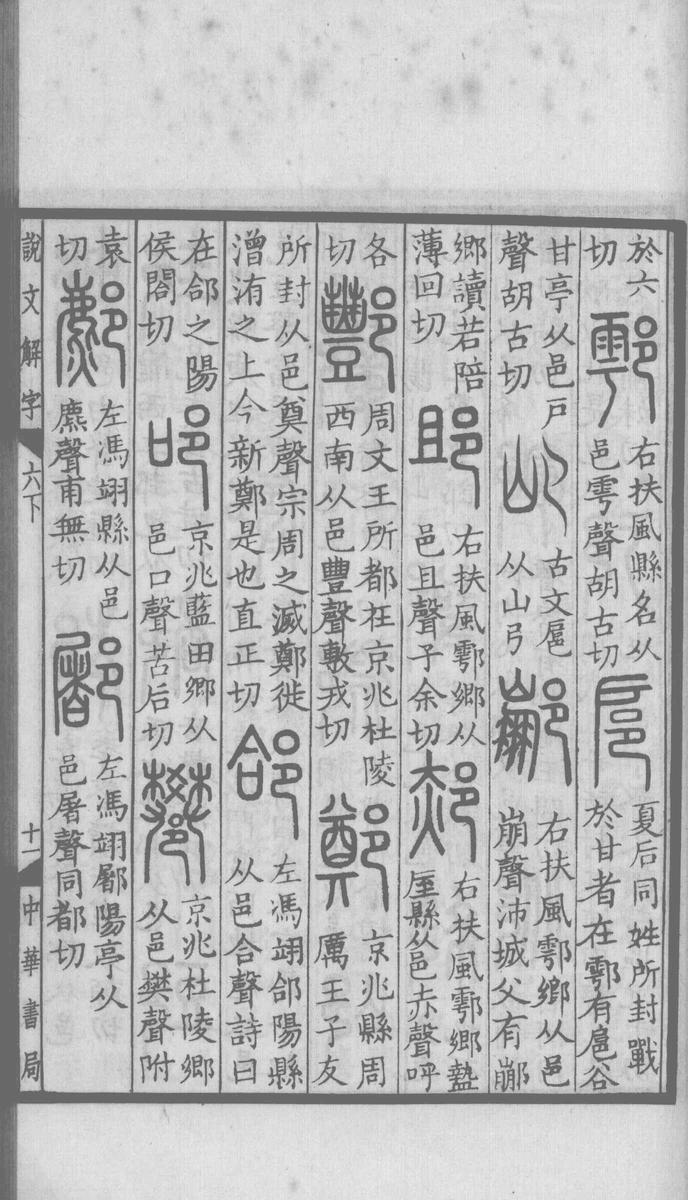 於六
切
鄠
右扶風縣名从
邑雩聲胡古切
扈
夏后同姓所封戰
於甘者在鄠有扈谷
甘亭从邑戶
聲胡古切
古文扈
从山弓
䣙
右扶風鄠鄉从邑
崩聲沛城父有䣙
鄉讀若陪
薄回切
䢸
右扶風鄠鄉从
邑且聲子余切
郝
右扶風鄠鄉盩
厔縣从邑赤聲呼
各
切
酆
周文王所都在京兆杜陵
西南从邑豐聲敷戎切
鄭
京兆縣周
厲王子友
所封从邑奠聲宗周之滅鄭徙
潧洧之上今新鄭是也直正切
郃
左馮翊郃陽縣
从邑合聲詩曰
在郃之陽
侯閤切
京兆藍田鄉从
邑口聲苦后切
京兆杜陵鄉
从邑樊聲附
袁
切
鄜
左馮翊縣从邑
麃聲甫無切
䣝
左馮翊䣝陽亭从
邑屠聲同都切
說文解字
六下
十一
中華書局